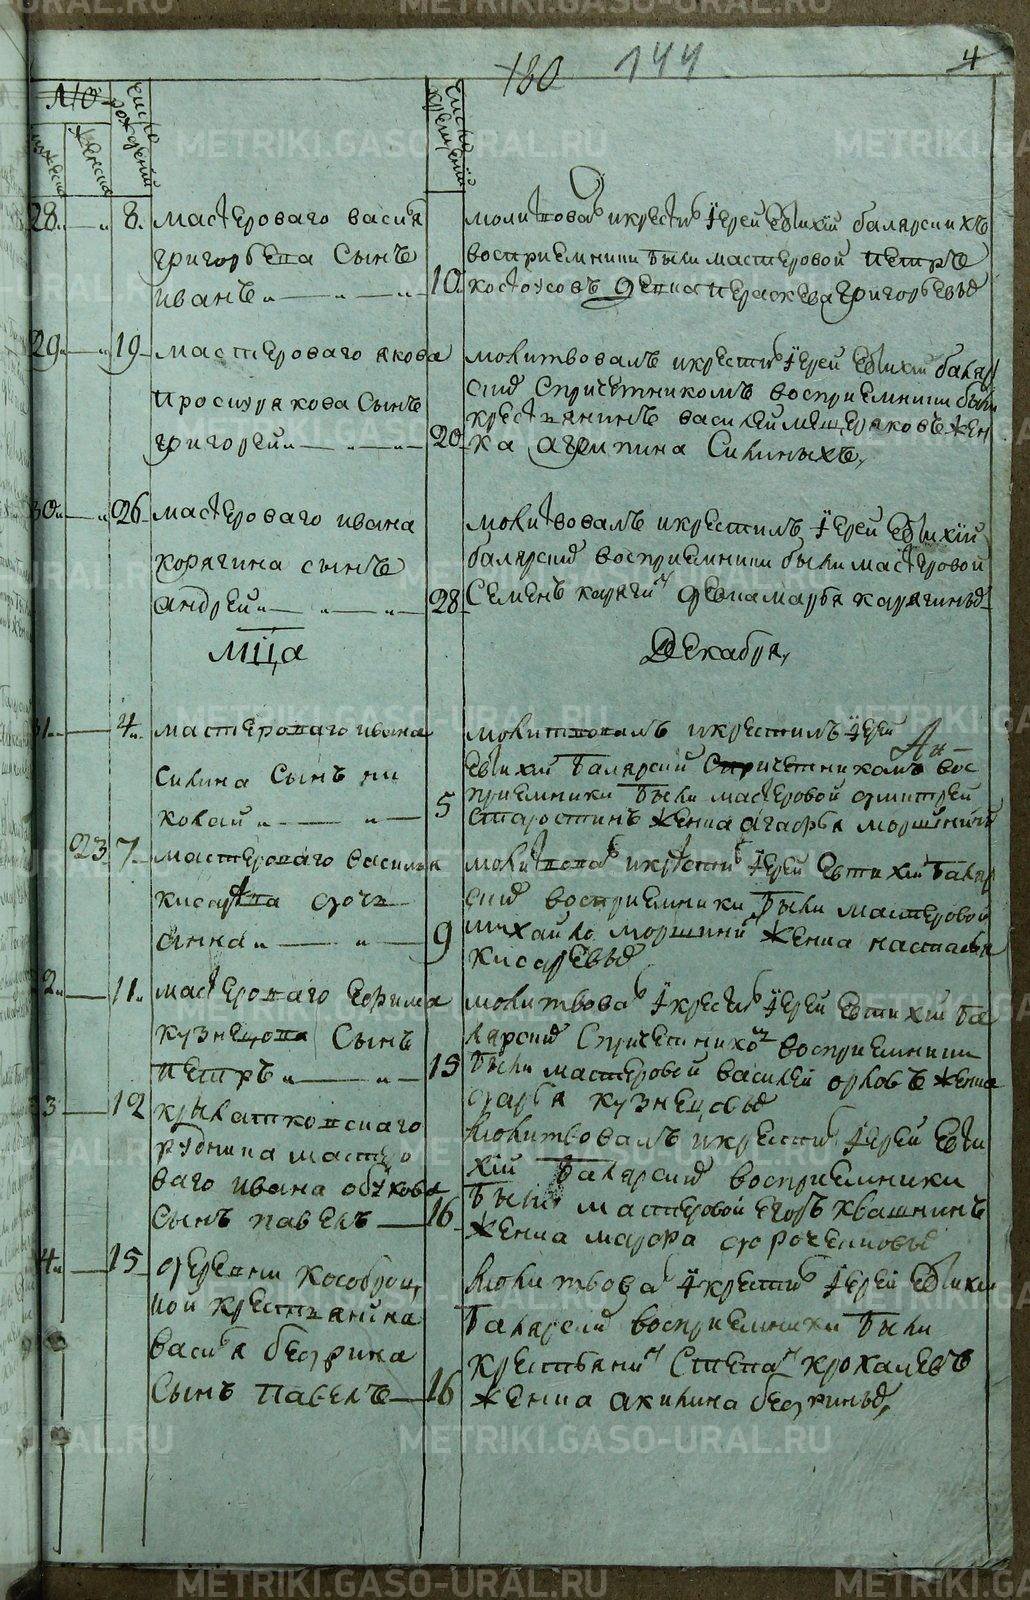 180 144 4
число рождений
число крещений
мужеска
женска
28 8 мастероваго василя
григорьева сынъ
иванъ
10
молитвовал и крестил Іерей Евтихій балярскихъ
восприемники были мастеровой петръ
костоусовъ девка пераскева григорьевъ
29 19 мастероваго якова
проскурякова сынъ
григорей
20
молитвовалъ и крестил Іерей Евтихій баляр
с причетникомъ восприемники были
крестьянинъ василей мещеряковъ жен
ка агрипина Силиныхъ
30 26 мастероваго ивана
корягина сынъ
андрей
28
молитвовалъ и крестилъ Іерей Евтихій
балярскій восприемники были мастеровой
Семенъ карягин девка марфа карягинъ
мца Декабря
31 4 мастероваго ивана
Силина Сынъ ни
колай
5
молитвовалъ и крестилъ Іерей
Евтихій Балярскій с причетникомъ вос
приемники были мастеровой дмитрей
старостинъ женка агафья
23 7 мастероваго василья
кисарева дочь
анна
9
молитвовал и крестил Іерей Евтихій Баляр
восприемники были мастеровой
михайло женка насталья
кисаревъ
2 11 мастероваго Ефима
кузнецова Сынъ
петръ
15
молитвовал и крестил Іерей Евтихій ба
лярскій с причетником восприемники
были мастеровой василей орловъ женка
дарья кузнецовъ
3 12 крылатковскаго
рудника мастеро
ваго ивана обухова
Сынъ павелъ
16
молитвовалъ и крестил Іерей Евти
хій Балярскій восприемники
были мастеровой Егоръ квашнинъ
женка мавра
4 15 деревни кособрод
кой крестьянина
василья бедрина
Сынъ павелъ
16
молитвовал и крестил Іерей Евтихій
балярскій восприемники были
крестьянин Степан крохалевъ
женка акилина бедринъ
METRIKI.GASO-URAL.RU